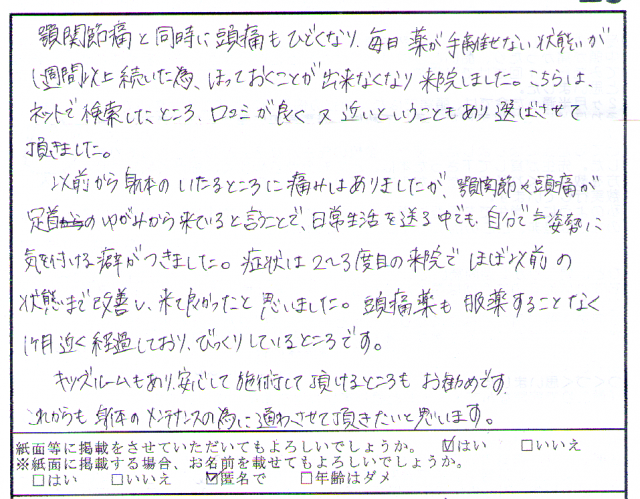 顎関節痛と同時に頭痛もひどくなり、毎日薬が手離せない状態が
1週間以上続いた為、ほっておくことが出来なくなり来院しました。こちらは、
ネットで検索したところ、口コミが良く又近いということもあり選ばさせて
頂きました。
以前から身体のいたるところに痛みはありましたが、顎関節や頭痛が
足首からのゆがみから来ていると言うことで、日常生活を送る中でも、自分で姿勢に
気を付ける癖がつきました。症状は2〜3度目の来院でほぼ以前の
状態まで改善し、来て良かったと思いました。頭痛薬も服薬することなく
1ヶ月近く経過しており、びっくりしているところです。
キッズルームもあり、安心して施術して頂けるところもお勧めです。
これからも身体のメンテナンスの為に通わさせて頂きたいと思います。
紙面等に掲載をさせていただいてもよろしいでしょうか。 ☑はい □いいえ
※紙面に掲載する場合、お名前を載せてもよろしいでしょうか。
□はい □いいえ ☑匿名で □年齢はダメ